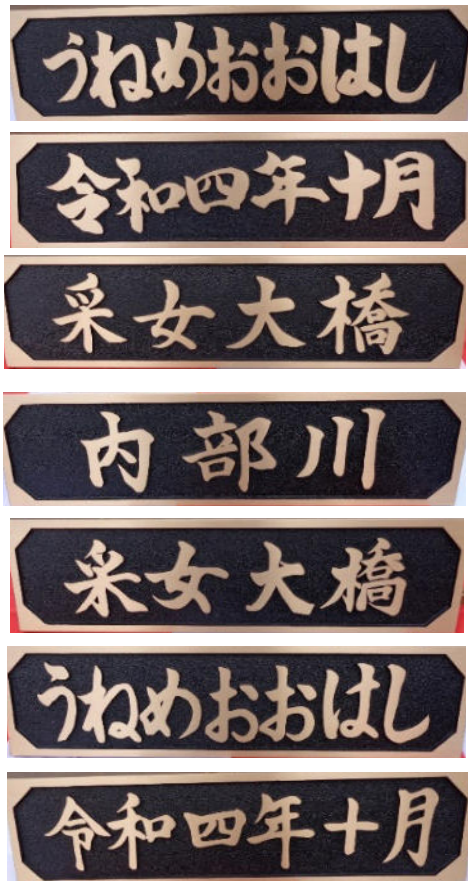 うねめおおはし
令和四年十月
采女大橋
内部川
采女大橋
うねめおおはし
令和四年十月